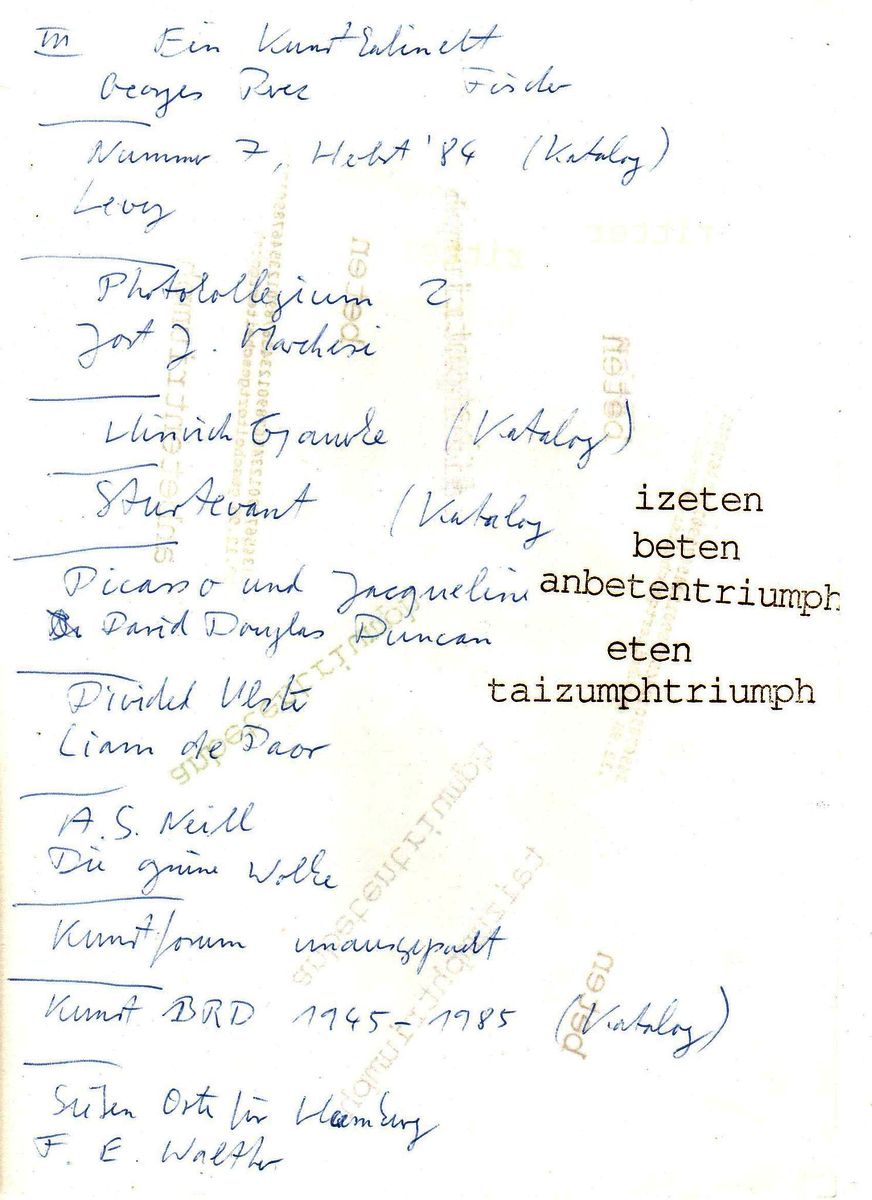 III Ein Kunstkabinett
Georges Perec Fischer
Nummer 7, Herbst '84 (Katalog)
Levy
Photokollegium 2
Jost J. Marchesi
Hinrich (Katalog)
Sturtevant (Katalog
Picasso und Jacqueline
David Douglas Duncan
Divided Ulster
Liam de Paor
A. S. Neill
Die grüne Wolke
Kunstforum unausgepackt
Kunst BRD 1945-1985 (Katalog)
Sieben Orte für Hamburg
F. E. Walther
izeten
beten
anbetentriumph
eten
taizumphtriumph
ritter
ritter
beten
beten
anbetentriumph
anbetentriumph
anbetentriumph
beten